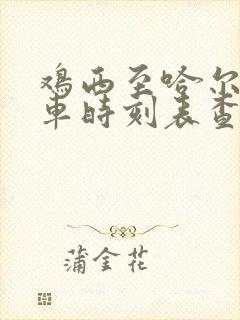 鸡西至哈尔
车时刻表查
蒲金花